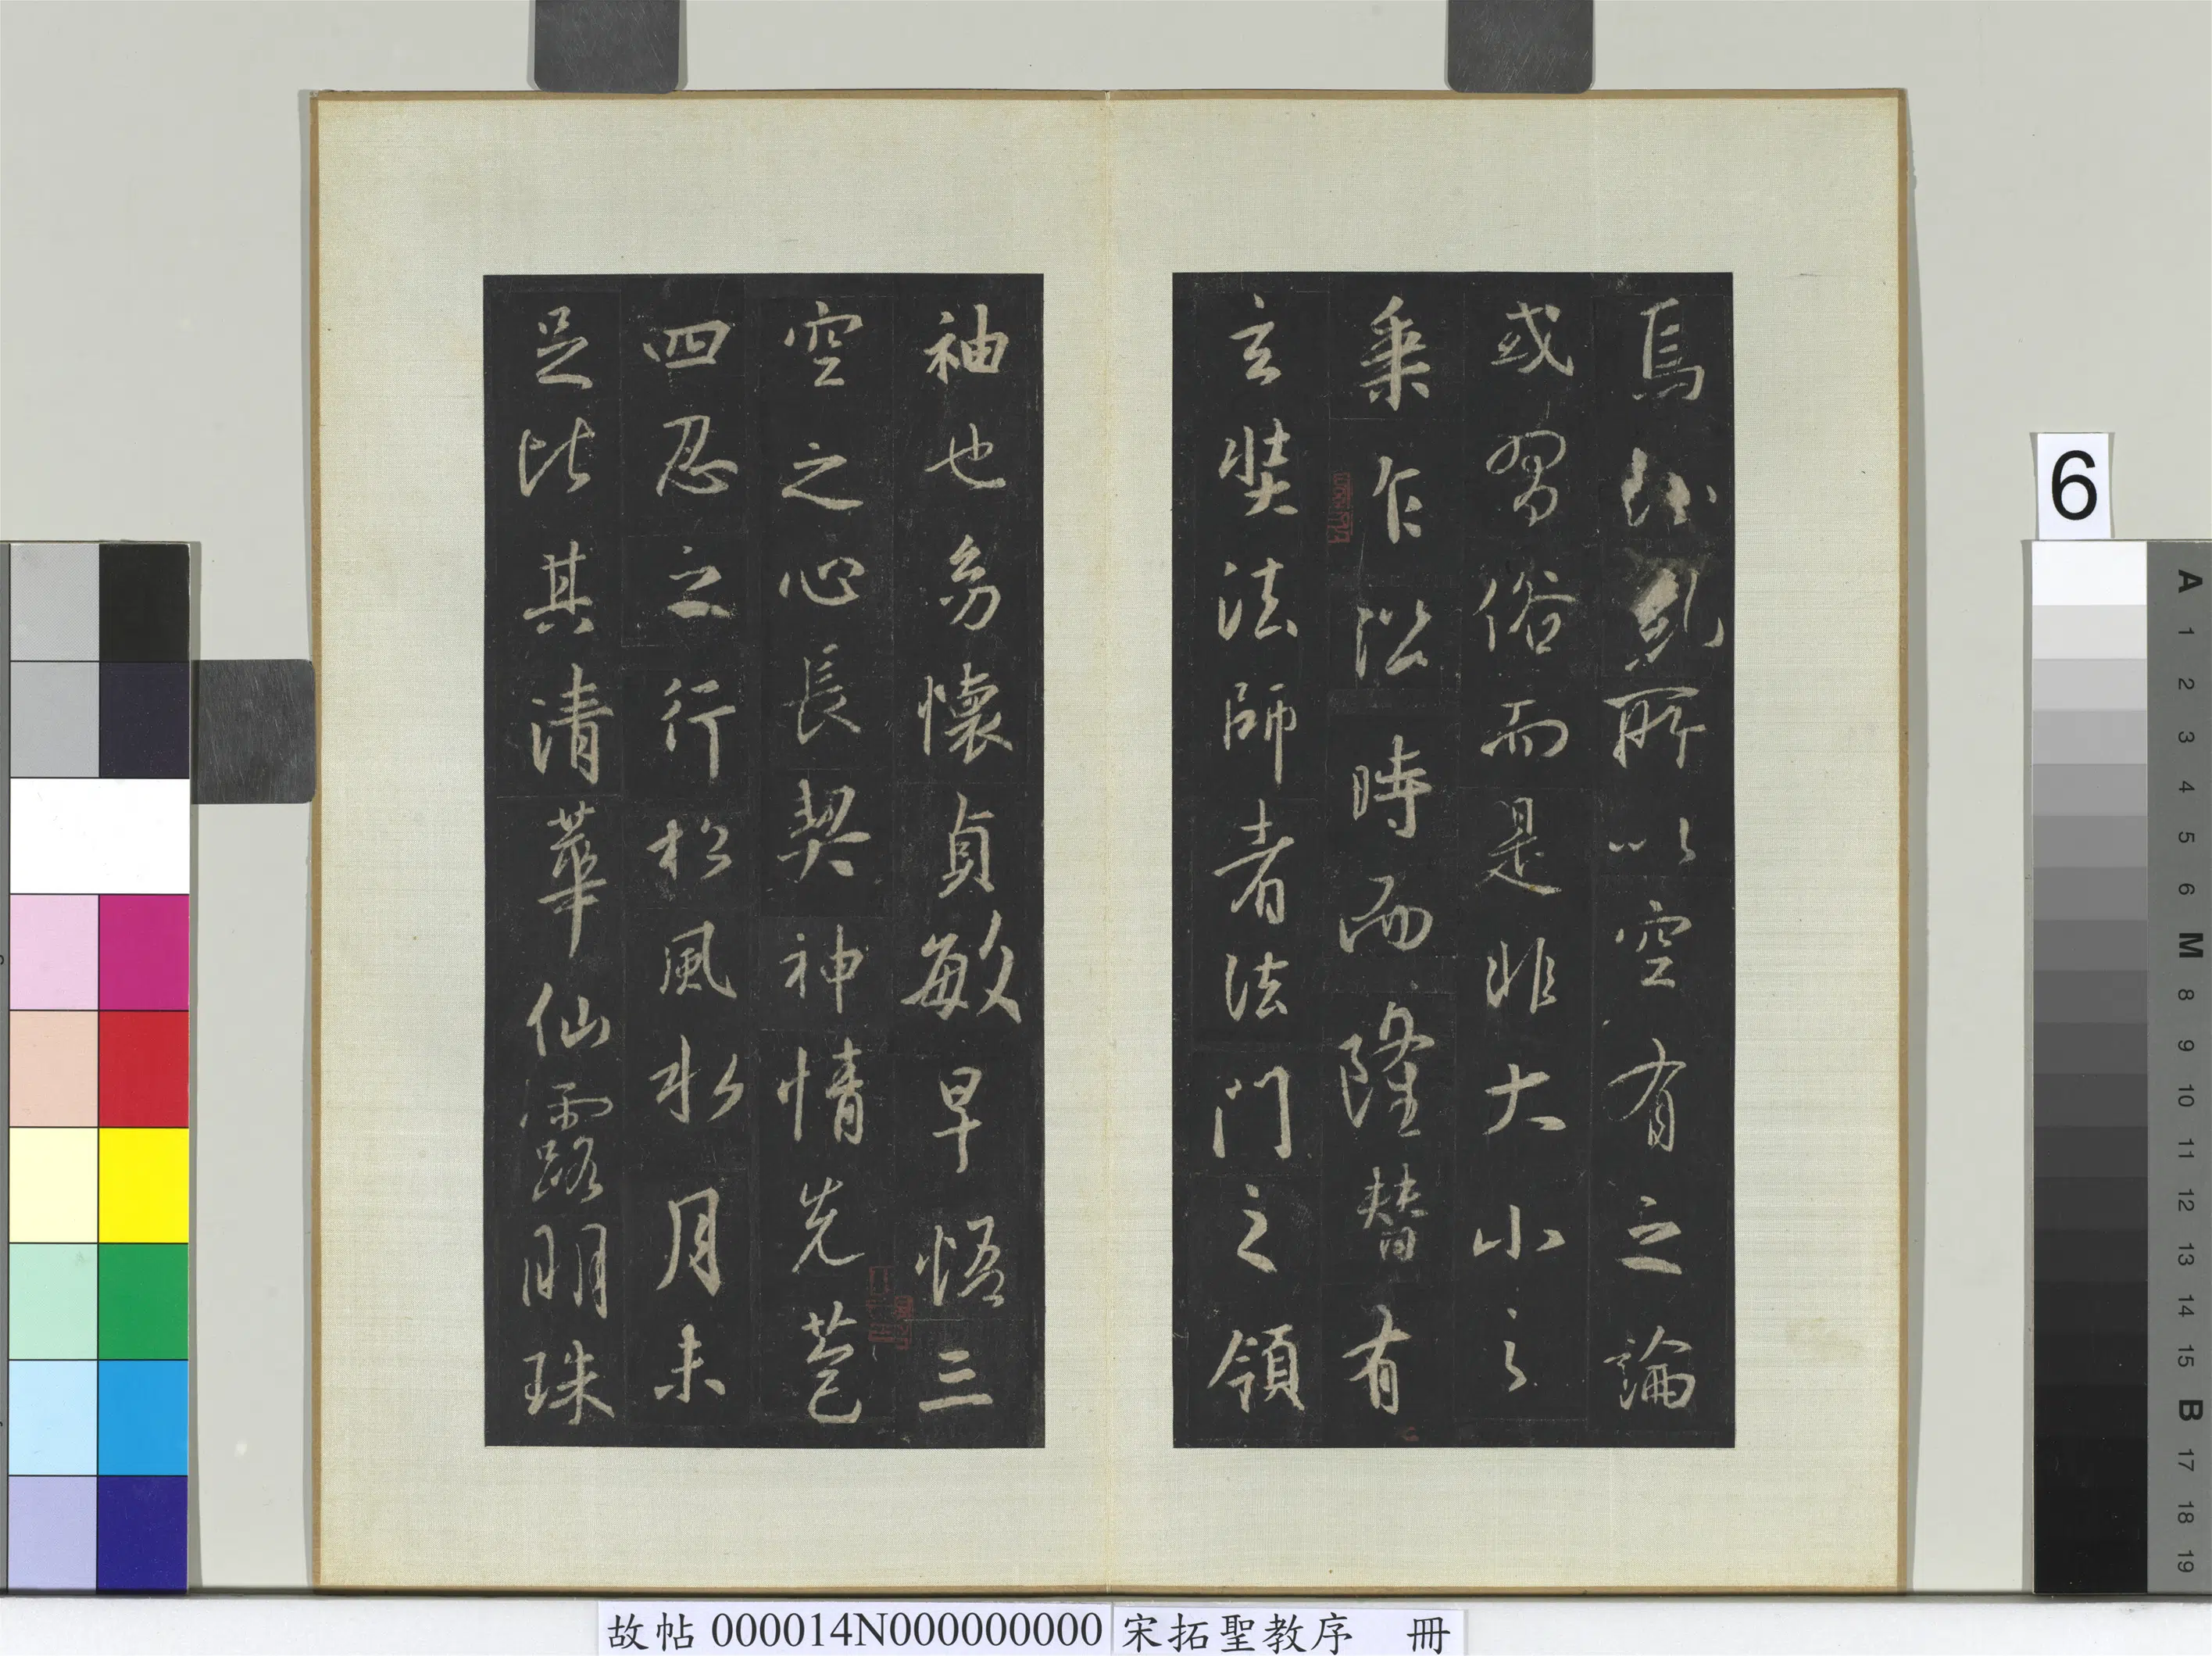 焉紛糺所以空有之論
或習俗而是非大小之
乘乍沿時而隆替有
玄奘法師者法門之領
袖也幼懷貞敏早悟三
空之心長契神情先苞
四忍之行松風水月未
足比其清華仙露明珠
6
A 1 2 3 4 5 6 M 8 9 10 11 12 13 14 15 B 17 18 19
故帖 000014N000000000 宋拓聖教序 冊